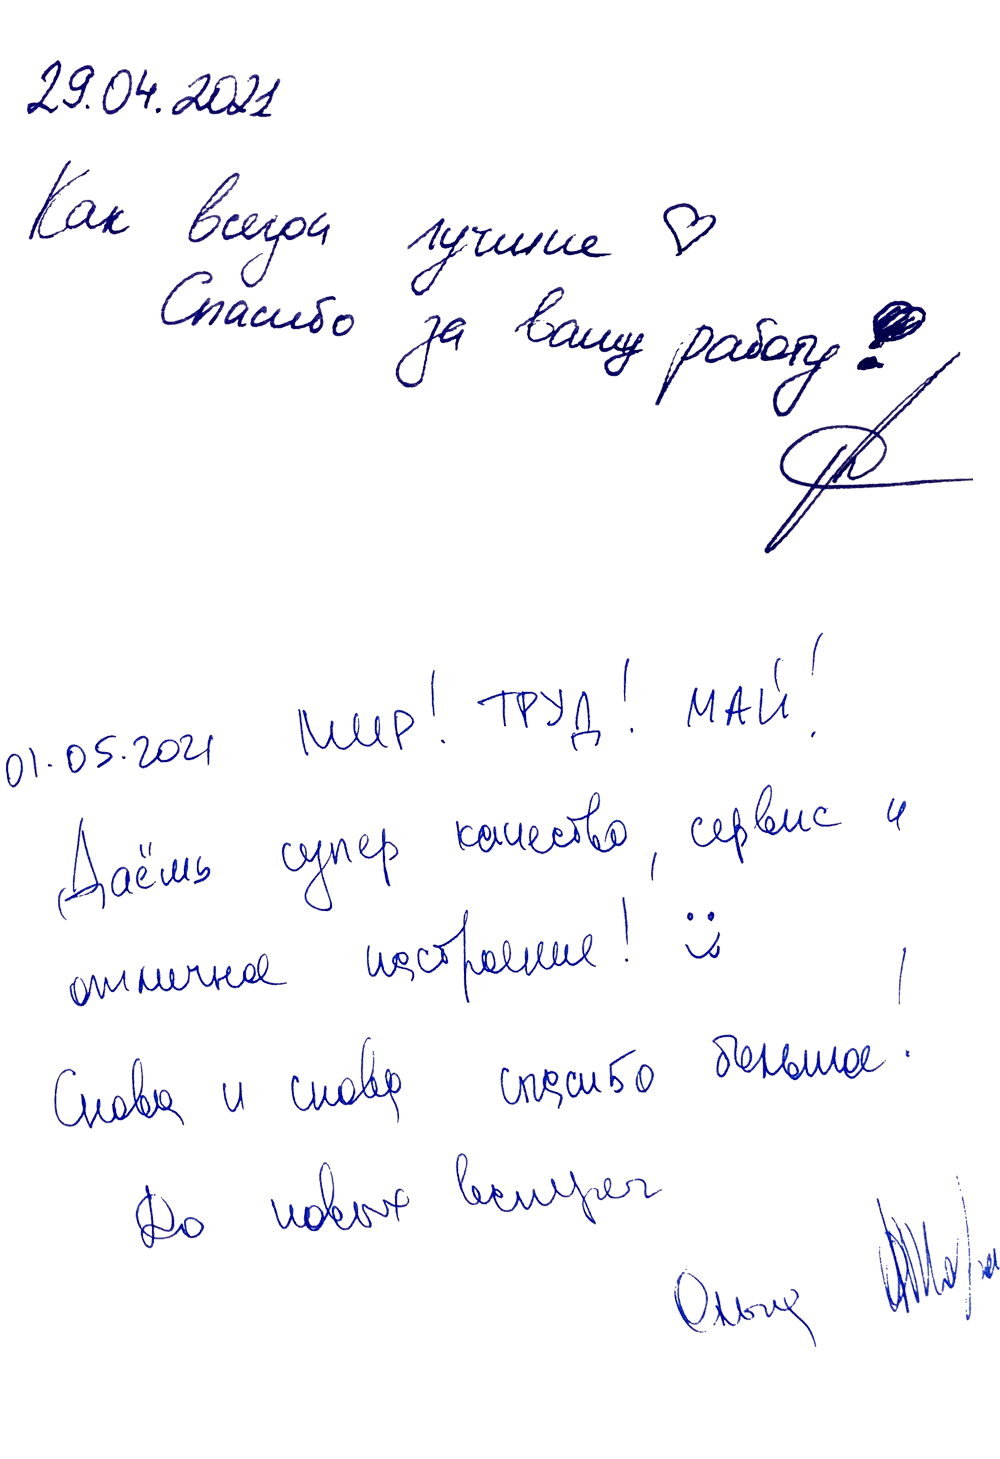 29.04.2021
Как всегда лучшие ♡
Спасибо за вашу работу!
01.05.2021 МИР! ТРУД! МАЙ!
Даёшь супер качество, сервис и
отличное настроение! :)
Снова и снова спасибо большое!
До новых встреч
Ольга